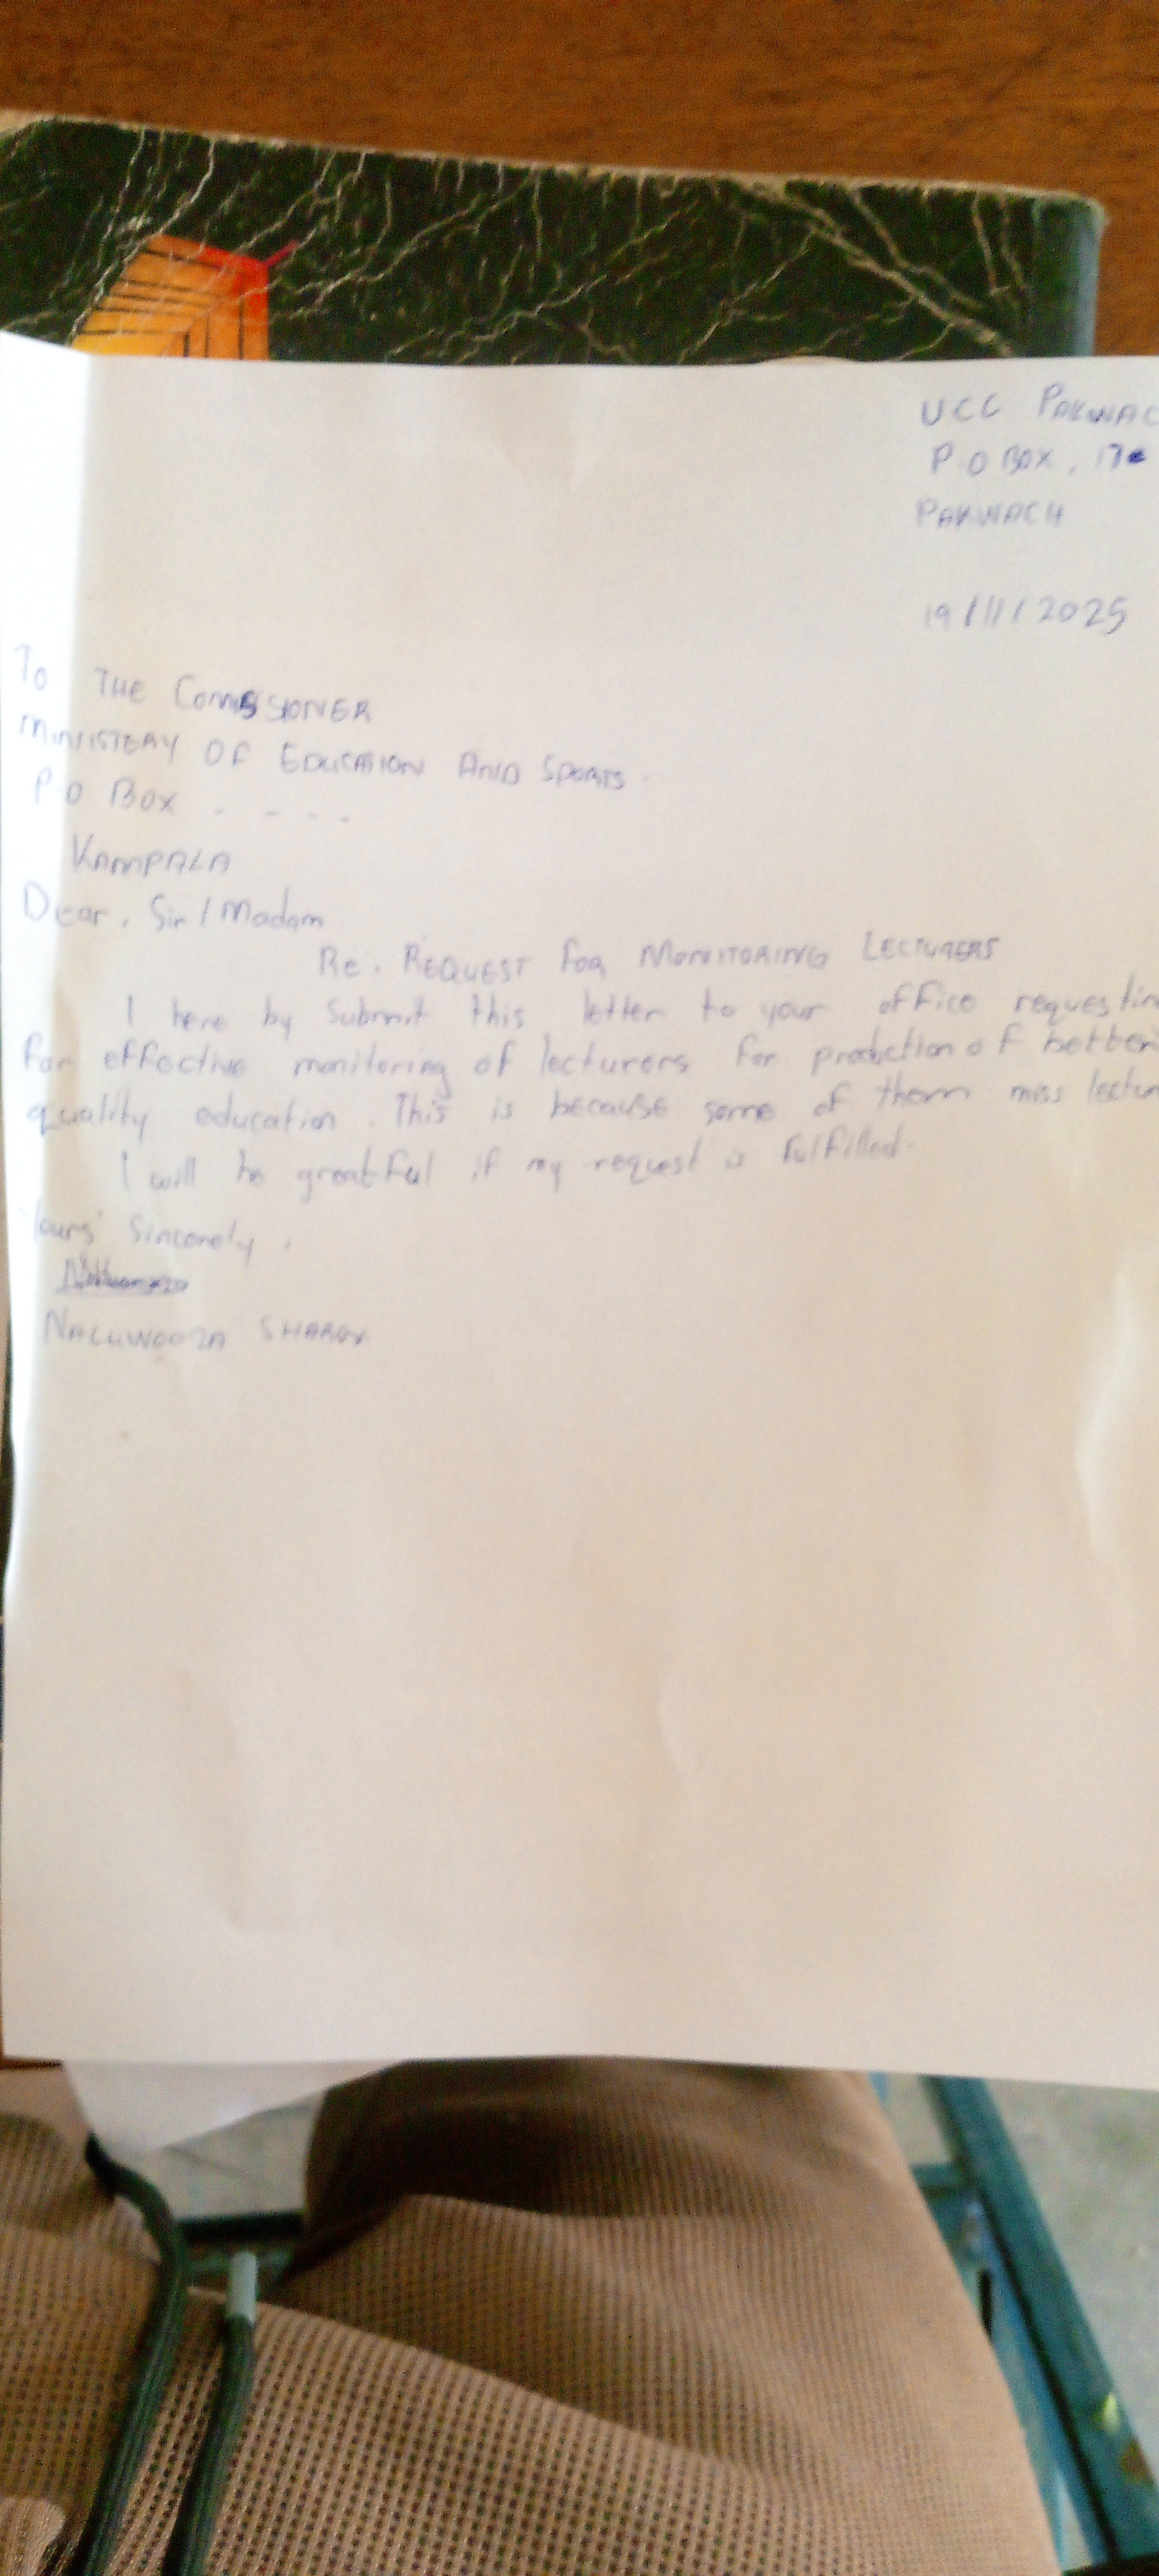 UCC PAKWAC
P.O BOX, 17
PAKWACH
19/11/2025
TO THE COMISSIONER
MINISTERY OF EDUCATION AND SPORTS.
P.O BOX - - - -
KAMPALA
Dear, Sir / Madam
Re. REQUEST FOR MONITORING LECTURERS
I here by Submit this letter to your office requestin
for effective monitoring of lecturers for production of better
quality education. This is because some of them miss lectur
I will be greatful if my request is fulfilled.
Yours' Sincerely,
NALUWOOZA SHARON